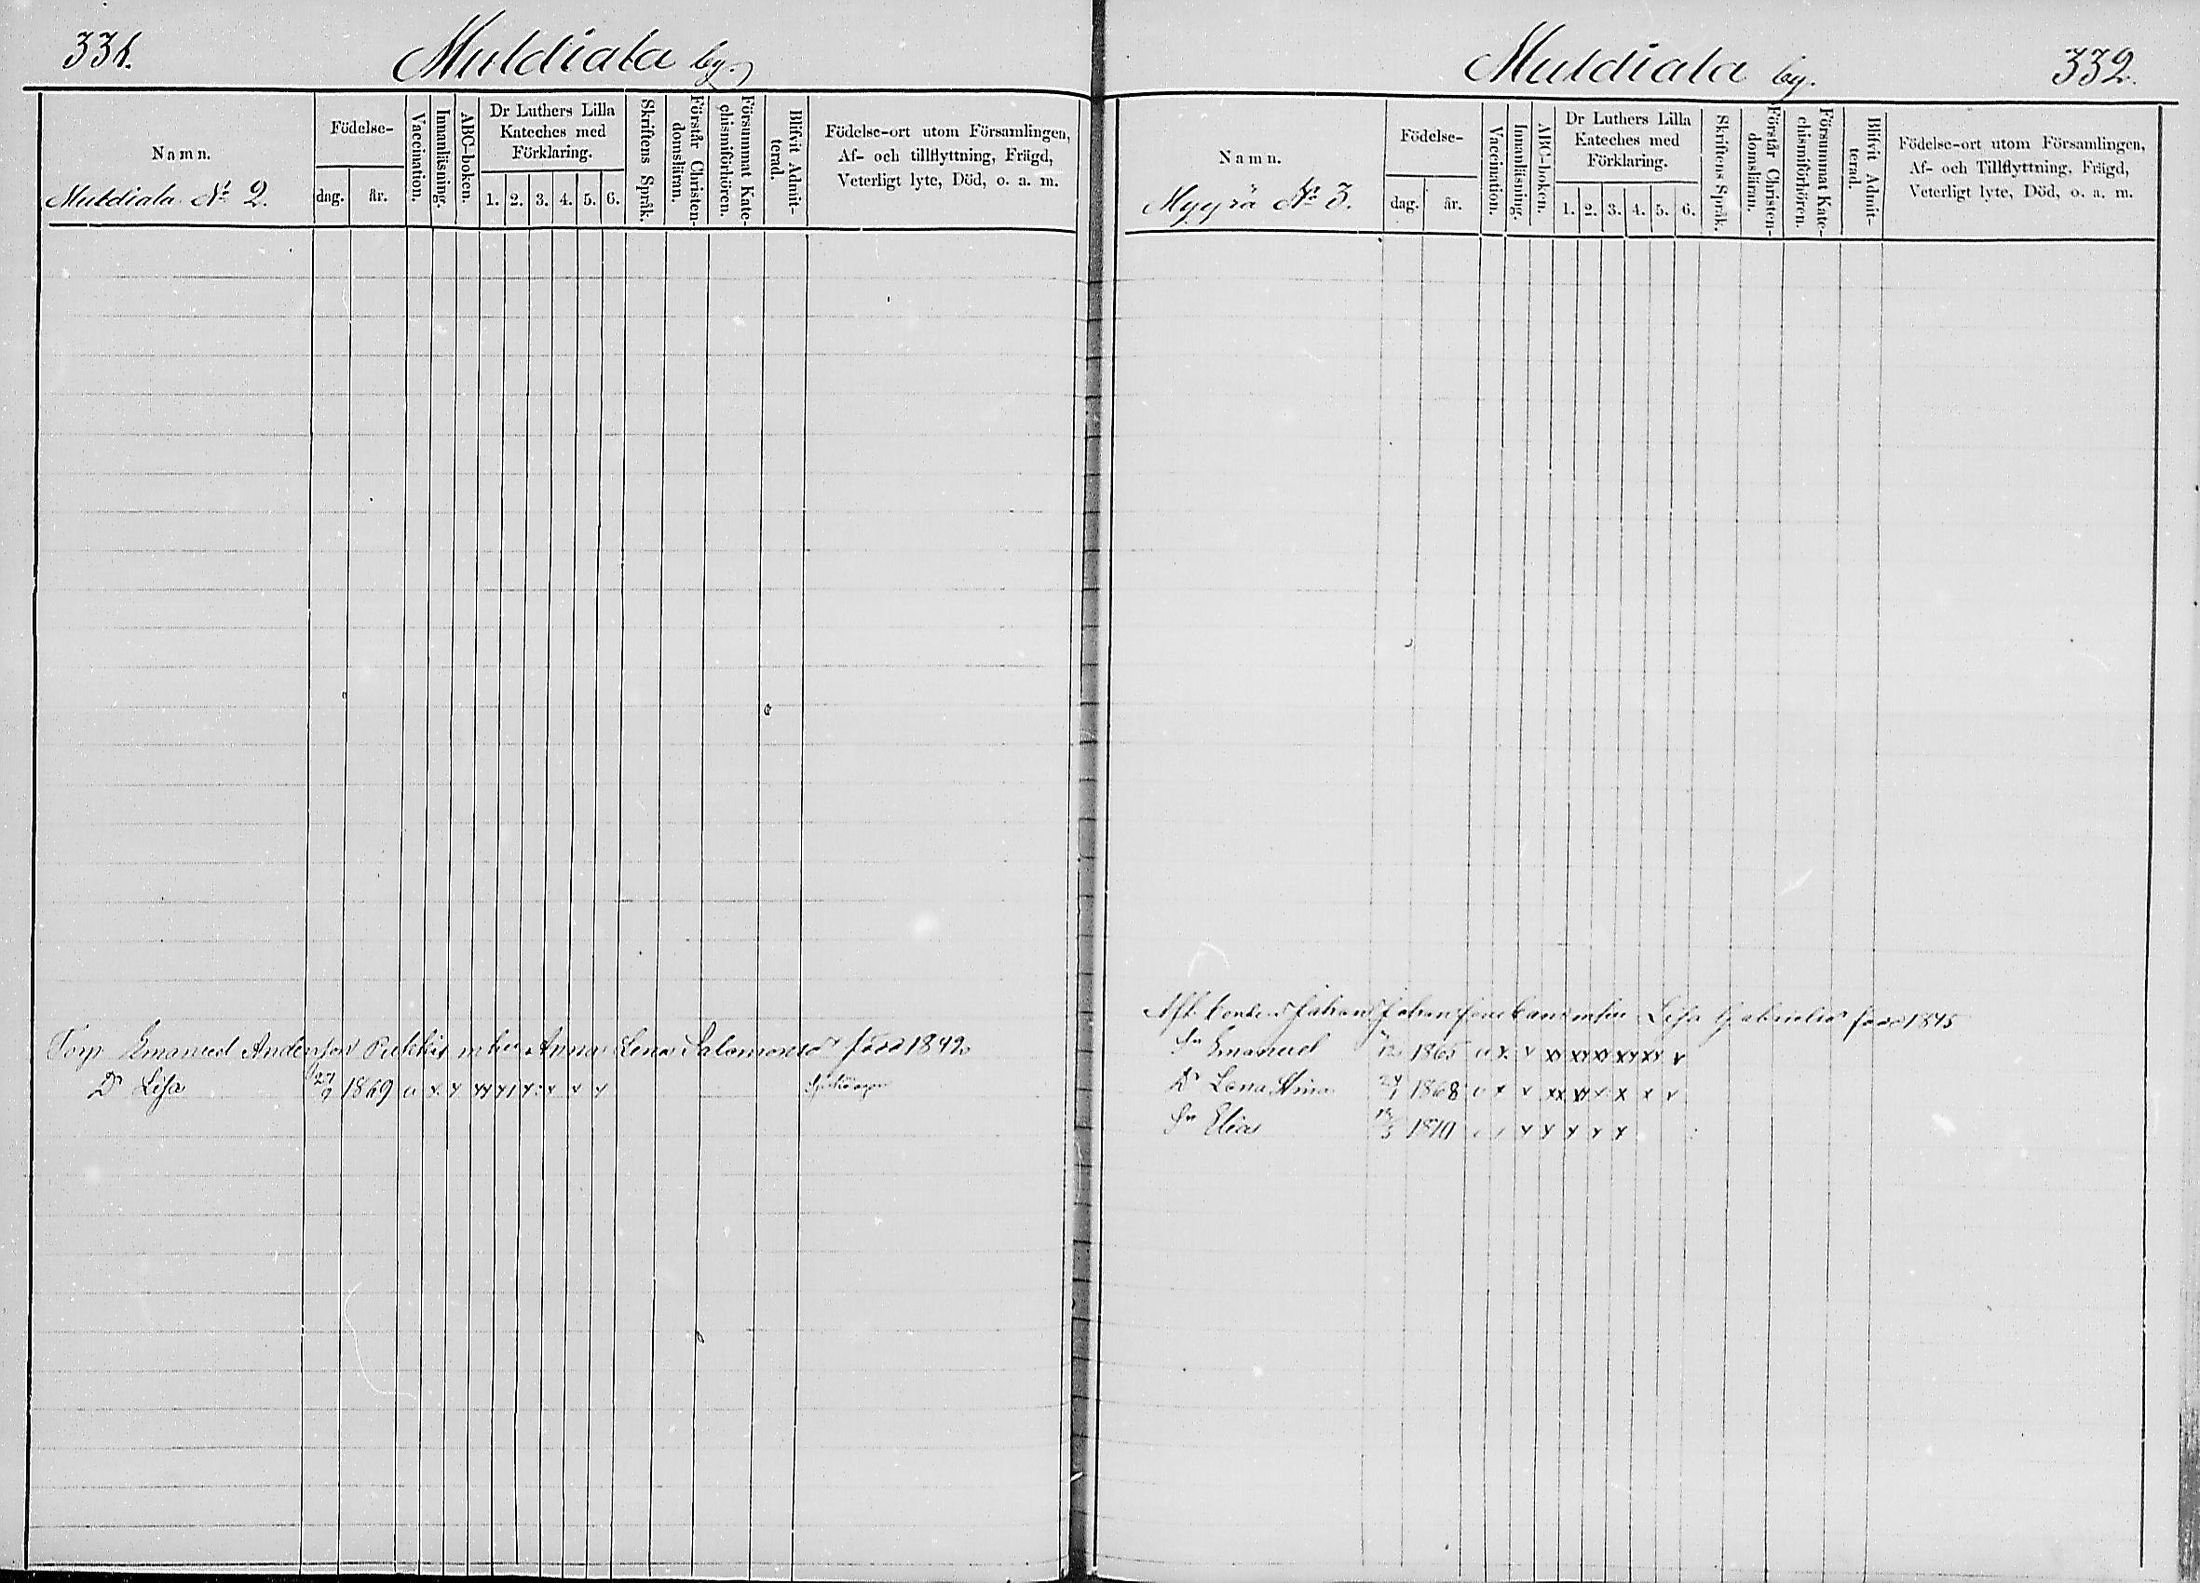 331.
Muldiala by.
Namn.
Muldiala No 2.
Födelse-
dag. år.
Vaccination.
Innanläsning.
ABC-boken.
Dr Luthers Lilla
Kateches med
Förklaring.
1. 2. 3. 4. 5. 6.
Skriftens Språk.
Förstår Christen-
domsläran.
Försummat Kate-
chismiförhören.
Blifvit Admit-
terad.
Födelse-ort utom Församlingen,
Af- och tillflyttning, Frägd,
Veterligt lyte, Död, o. a. m.
Torp Emanuel Andersson Anna Lena Salomonsdr född 1842
Dr Lisa 27/9 1869
Muldiala by.
332.
Namn.
Myyrä No 3.
Födelse-
dag. år.
Vaccination.
Innanläsning.
ABC-boken.
Dr Luthers Lilla
Kateches med
Förklaring.
1. 2. 3. 4. 5. 6.
Skriftens Språk.
Förstår Christen-
domsläran.
Försummat Kate-
chismiförhören.
Blifvit Admit-
terad.
Födelse-ort utom Församlingen,
Af- och Tillflyttning, Frägd,
Veterligt lyte, Död, o. a. m.
Johan Lisa född 1845
Sn Emanuel 1865
Dr Lena Stina 1868
Sn Elias 1870